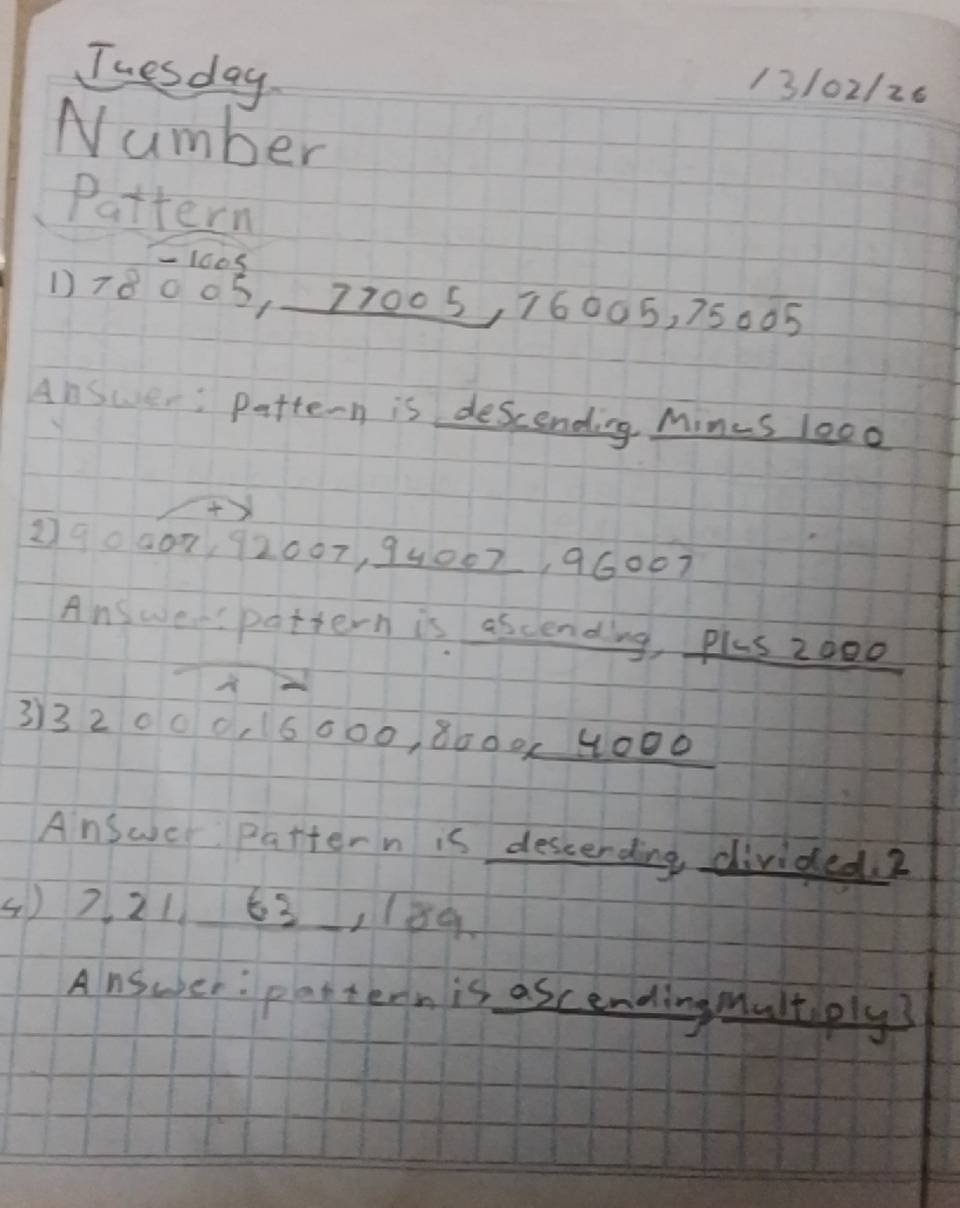 Tuesday 13/02/26
Number
Pattern
-1005
1) 78005, 77005, 76005, 75005
Answer: pattern is descending Minus 1000
+
2) 90007, 92007, 94007, 96007
Answer: pattern is ascending, plus 2000
3) 32000, 16000, 8000, 4000
Answer: Pattern is descending divided.2
4) 7, 21, 63, 189.
Answer: pattern is ascending Multiply 3